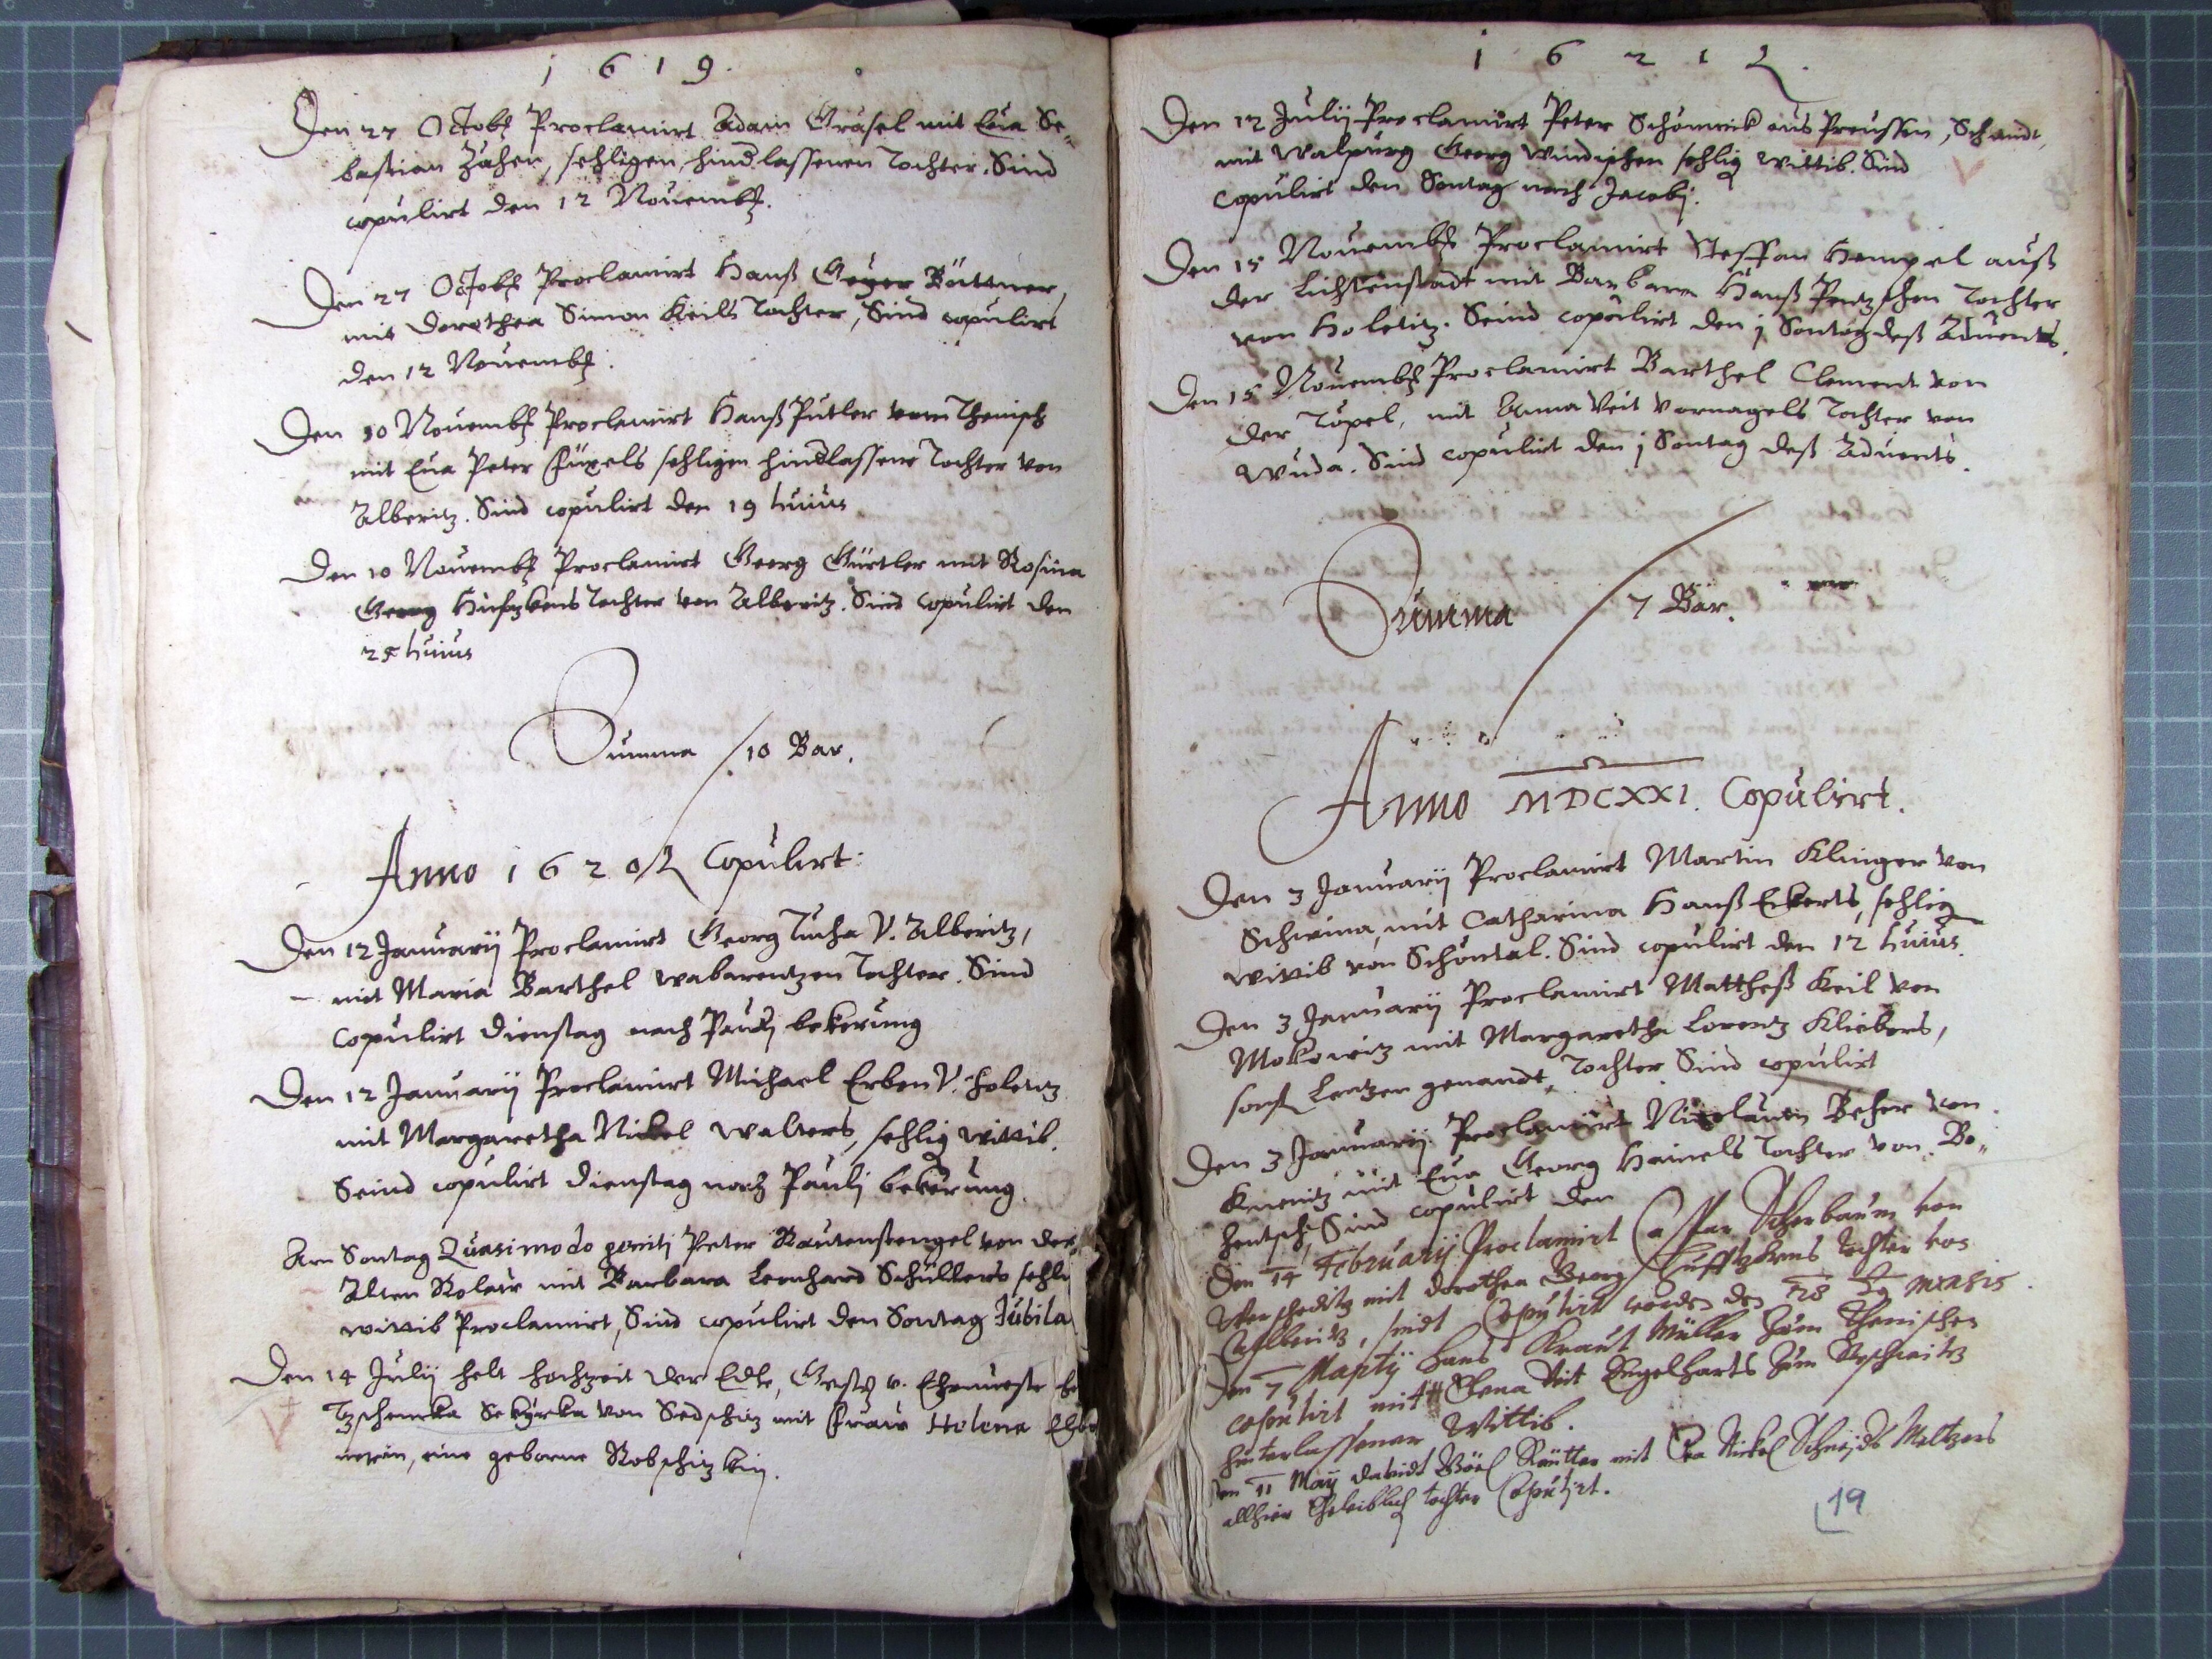 1619.
Den 27 Octobr Proclamirt Adam Gräsel mit Eua Se-
bastian Zahen, sehligen hindlassenen Tochter. Sind
copulirt den 12 Nouembr.
Den 27 Octobr Proclamirt Hanß Geyer Büttner,
mit Dorothea Simon Keils Tochter, Sind copulirt
den 12 Nouembr.
Den 10 Nouembr Proclamirt Hanß Putler vom Thenisch
mit Eua Peter Füxels sehligen hindlassene Tochter von
Alberitz. Sind copulirt den 19 huius
Den 10 Nouembr Proclamirt Georg Gürtler mit Rosina
Georg Tochter von Alberitz. Sind copulirt den
25 huius
Summa / 10 Bar.
Anno 1620 Copulirt.
Den 12 Januarij Proclamirt Georg Tucha V. Alberitz,
mit Maria Barthel wabarentzen Tochter. Sind
Copulirt Dienstag nach Paulj bekerung
Den 12 Januarij Proclamirt Michael Erben V. Holetitz
mit Margaretha Nickel walters, sehlig wittib.
Seind copulirt Dienstag nach Paulj bekerung.
Am Sontag Quasimodo genitj Peter Rautenstengel von der
Alten Rolaw mit Barbara Leonhard Schüllers sehli
wittib Proclamirt, Sind copulirt den Sontag Jubila
Den 14 Julij helt hochzeit der Edle, Gestr v. Ehrnueste he
Tzschencka Sekyrka von Sedschitz mit Fraw Helena
eine geborne Robschitzkin.
1621
Den 12 Julij Proclamirt Peter Schömrick aus Preussen,
mit Walpurg Georg Windischen sehlig wittib. Sind
copulirt den Sontag nach Jacobj.
Den 15 Nouembr Proclamirt Steffan Hempel auß
der Lichtenstadt mit Barbara Hanß Pentzschen Tochter
von Holetitz. Seind copulirt den j Sontag deß Aduents.
Den 15 Nouembr Proclamirt Barthel Clement von
der Töpel, mit Anna Veit Vornagels Tochter von
Wuda. Sind copulirt den j Sontag deß Aduents.
Summa / 7 Bar.
Anno MDCXXI. Copulirt.
Den 3 Januarij Proclamirt Martin Klinger von
Schwina, mit Catharina Hanß Eckerts, sehlig
wittib von Schöntal. Sind copulirt den 12 huius.
Den 3 Januarij Proclamirt Mattheß Keil von
Mokowitz mit Margaretha Lorentz Kliebers,
sonst Lentzen genandt, Tochter Sind copulirt
Den 3 Januarij Proclamirt Nicolaum Beher von
Knenitz mit Eua Georg Hainels Tochter von Bo-
hentsch, Sind copulirt den
Den 14 Februarij Proclamirt Caspar Scherbaum von
mit Dorothea Georg Tochter von
Alberitz, sindt Copulirt worden den 28 mensis.
Den 7 Martij Hans Kraut Müller zum Thenischen
copulirt mit Elena Veit Engelharts zum
hinterlassener Wittib.
Den 11 Maij Davidt Reutter mit Eva Nickel Schmids Meltzers
allhier Eheleiblich tochter Copulirt.
19